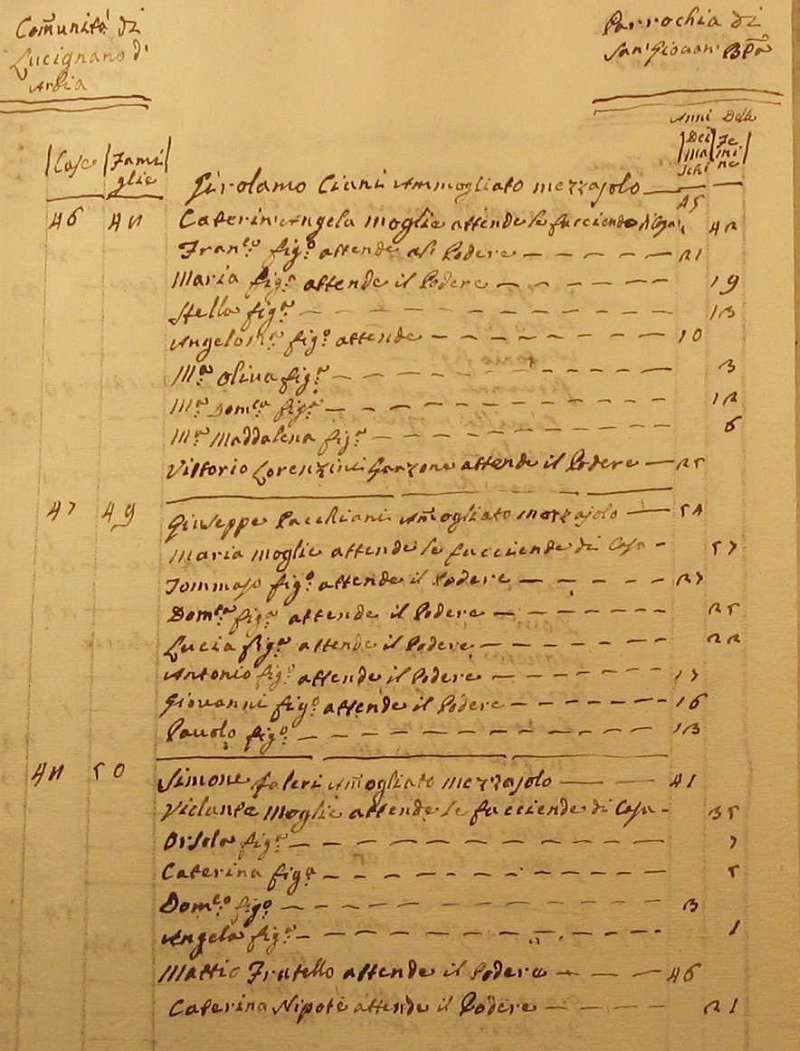 Comunità di
Lucignano d'
Arbia
Parrochia di
San Giovan' Bta
Anni Delle
Case
Fami
glie
Dei
Ma
schi
Fe
mi
ne
Girolamo Ciani Ammogliato mezzajolo 45
46 48 Caterin' Angela Moglie attende le facciende di Casa 42
Fran.co fig.o attende al Podere 21
Maria fig.a attende il Podere 19
Stella fig.a 13
Angelo M.a fig.o attende 10
M.a Oliva fig.a 3
M.a Dom.ca fig.a 12
M.a Maddalena fig.a 6
Vittorio Lorenzini Garzone attende il Podere 25
47 49 Giuseppe Pacchiani Amogliato Mezzajolo 54
Maria Moglie attende le facciende di Casa 57
Tommaso fig.o attende il Podere 27
Dom.ca fig.a attende il Podere 25
Lucia fig.a attende il Podere 22
Antonio fig.o attende il Podere 17
Giovanni fig.o attende il Podere 16
Pavolo fig.o 13
48 50 Simone Faleri Amogliato Mezzajolo 41
Violante Moglie attende le facciende di Casa 35
Orsola fig.a 7
Caterina fig.a 5
Dom.co fig.o 3
Angela fig.a 1
Mattio Fratello attende il Podere 46
Caterina Nipote attende il Podere 21